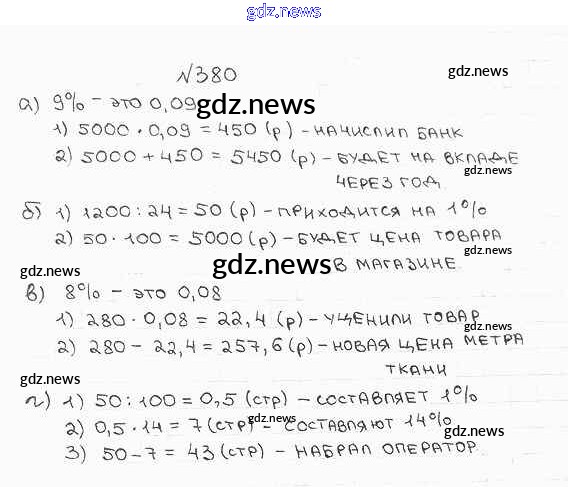 gdz.news
№380
gdz.news
а) 9% - это 0,09
gdz.news
1) 5000 · 0,09 = 450 (р) - начислил банк
2) 5000 + 450 = 5450 (р) - будет на вкладе
gdz.news
через год.
б) 1) 1200 : 24 = 50 (р) - приходится на 1%
gdz.news
2) 50 · 100 = 5000 (р) - будет цена товара
gdz.news
gdz.news
в магазине.
gdz.news
в) 8% - это 0,08
1) 280 · 0,08 = 22,4 (р) - уценили товар
gdz.news
2) 280 - 22,4 = 257,6 (р) - новая цена метра
ткани
gdz.news
г) 1) 50 : 100 = 0,5 (стр) - составляет 1%
gdz.news
2) 0,5 · 14 = 7 (стр) - составляют 14%
gdz.news
3) 50 - 7 = 43 (стр) - набрал оператор.